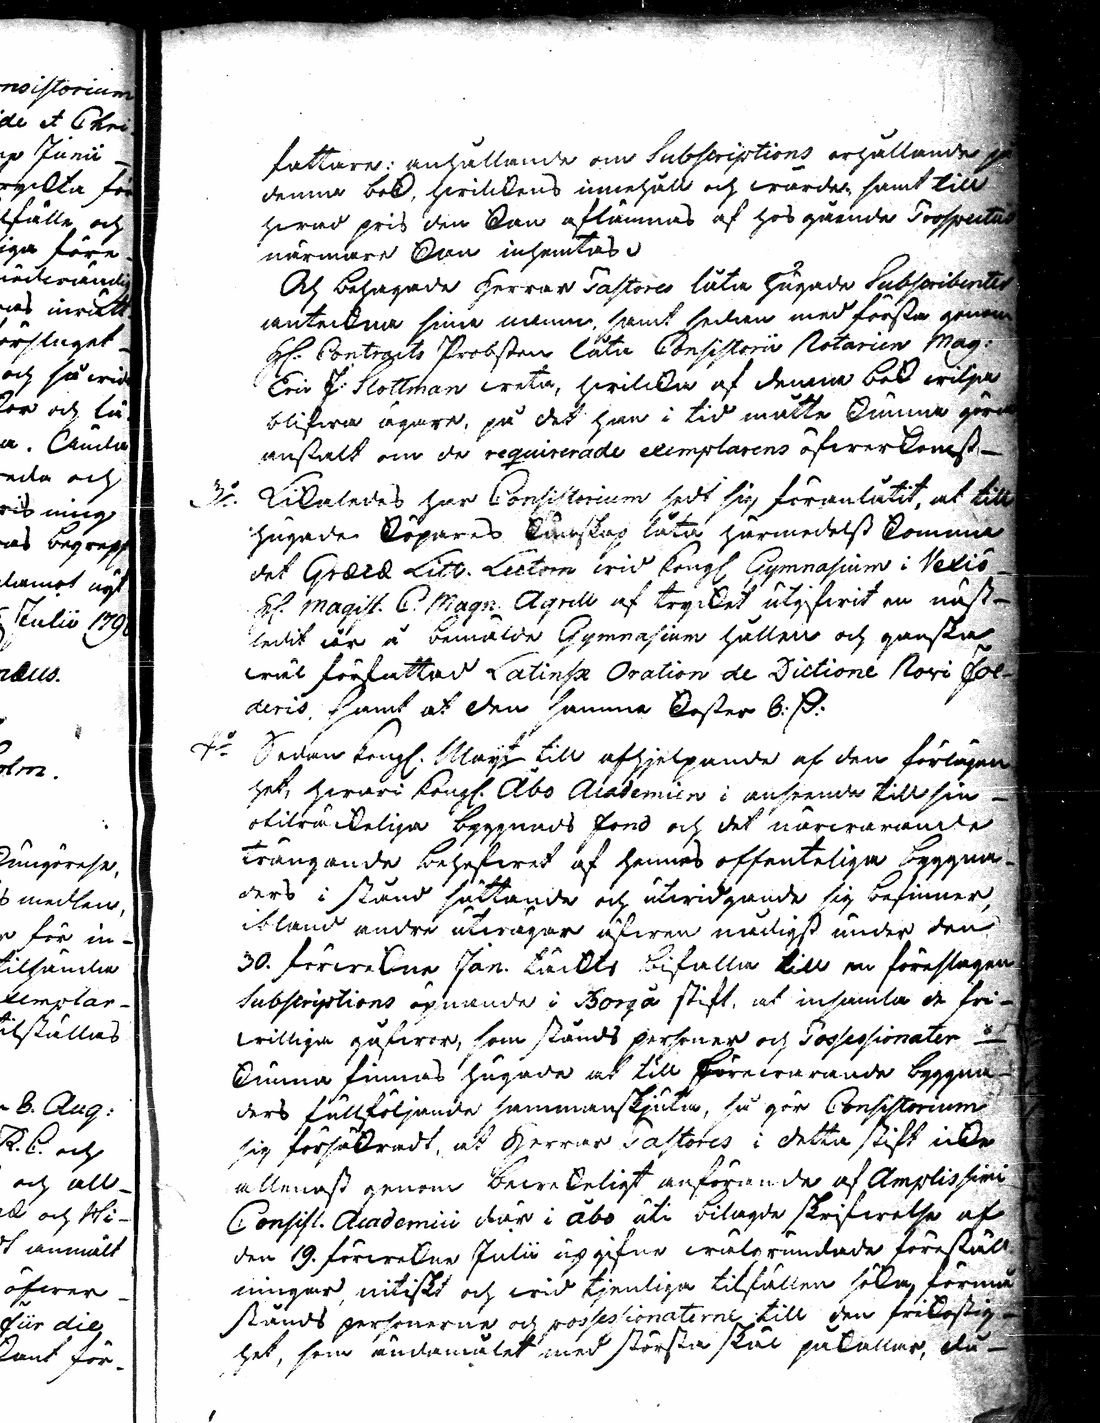 nsistorium
de et Chri-
Junii
ryckta för
lfälle och
iga före-
inrätt-
förslaget
och
och lä-
a. Cauda
reda och
ris ning
as begrepp
Julii 179
raus.
olm.
kungörelse,
s medlen,
r för in-
tilhanda
xemplar-
tilställas
6. Aug:
R. C. och
och all-
och Wi-
anmält
öfver
für die
kant för-
fattare: anhållande om Subscriptions erhållande på
denna bok, hvilckens innehåll och värde, samt till
hvad pris den kan aflämnas af hos gående Prospectus
närmare kan inhemtas.
Och behagade Herrar Pastores låta hugade Subscribenter
anteckna sina namn, samt sedan med första genom
H. Contracts Probsten låta Consistorii Notarien Mag:
Eric J: Slottman veta, hvilcka af denna bok vilja
blifva ägare, på det han i tid måtte kunna göra
anstalt om de requirerade exemplarens öfverkomst
3:o Likaledes har Consistorium sedt sig föranlåtit, at till
hugade köpares kunskap låta härmedelst komma
det Græcæ Litt. Lectorn vid Kongl. Gymnasium i Vexiö
H. Magist. C. Magn. Agrell af trycket utgifvit en näst-
ledit år å bemälde Gymnasium hållen och ganska
väl författad Latinsk Oration de Dictione Novi Foe-
deris, samt at den samma kostar 6: ß:
4:o Sedan Kongl. Mayt till afhjelpande af den förlägen
het, hvari Kongl. Åbo Academien i anseende till sin
otilräckeliga byggnads fond och det närvarande
trängande behofvet af hennes offenteliga byggna-
ders i stånd sättande och utvidgande sig befinner,
ibland andre utvägar äfven nådigst under den
30. förvekne Jan. täckts bifalla till en föreslagen
Subscriptions öpnande i Borgå stift, at insamla de fri-
villiga gåfvor, som stånds personer och Possessionater
kunna finnas hugade at till förevarande byggna-
ders fullföljande sammanskjuta, så gör Consistorium
sig försäkradt, at Herrar Pastores i detta stift icke
allenast genom bevekeligt anförande af Amplissimi
Consist. Academici där i Åbo uti bilagde skrifvelse af
den 19. förvekne Julii upgifne välgrundade föreställ-
ningar, nitiskt och vid tjenliga tilfällen söka förmå
stånds personerne och possessionaterne till den frikostig-
het, som ändamålet med största skäl påkallar, du-